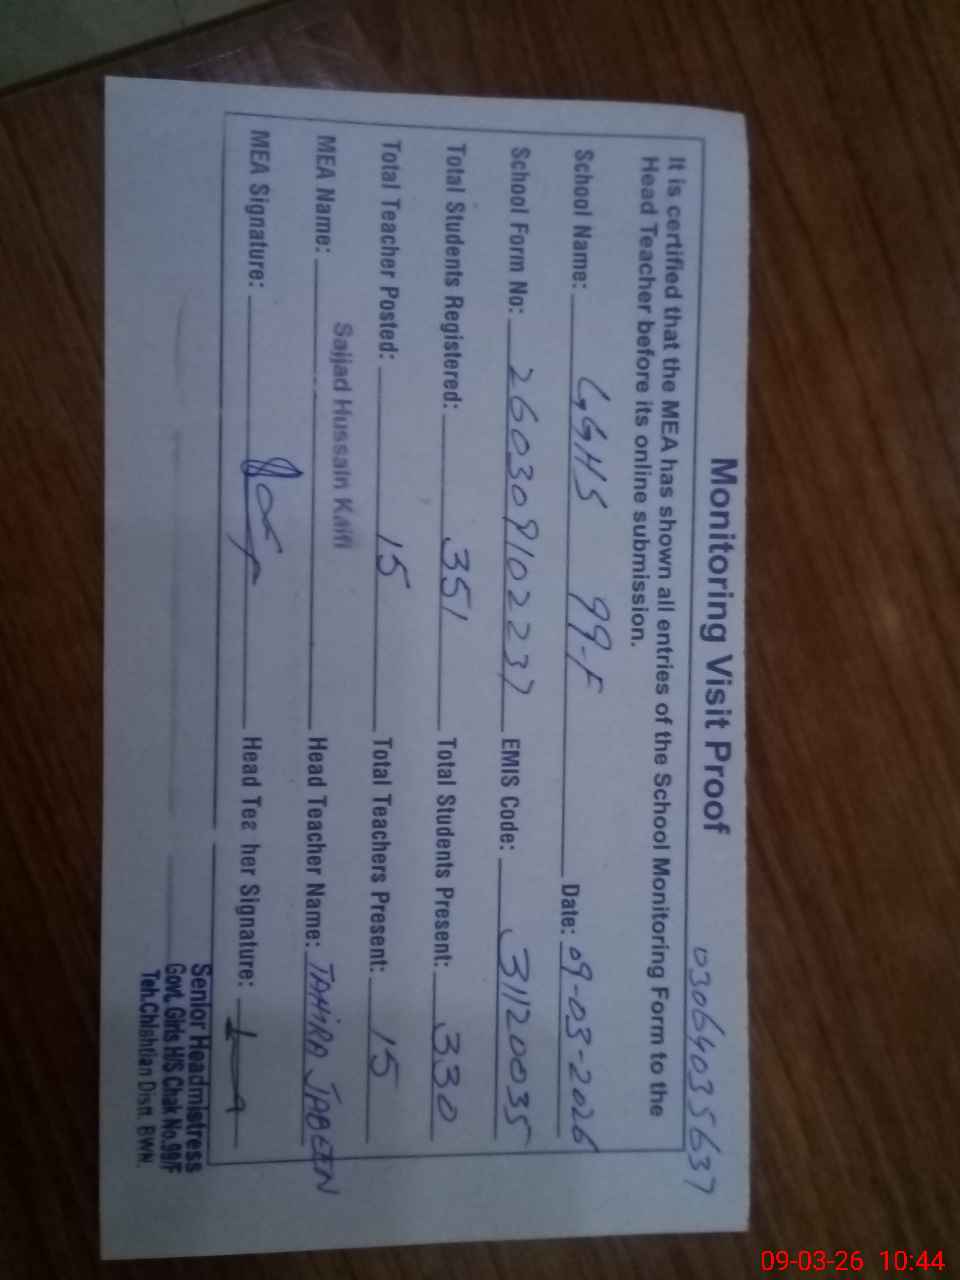 03064035637
Monitoring Visit Proof
It is certified that the MEA has shown all entries of the School Monitoring Form to the
Head Teacher before its online submission.
School Name: GGHS 99-F Date: 09-03-2026
School Form No: 260309102237 EMIS Code: 31120035
Total Students Registered: 351 Total Students Present: 330
Total Teacher Posted: 15 Total Teachers Present: 15
MEA Name: Sajjad Hussain Kaifi Head Teacher Name: TAHIRA JABEEN
MEA Signature: Head Teacher Signature:
Senior Headmistress
Govt. Girls H/S Chak No.99/F
Teh.Chishtian Distt. BWN.
09-03-26 10:44